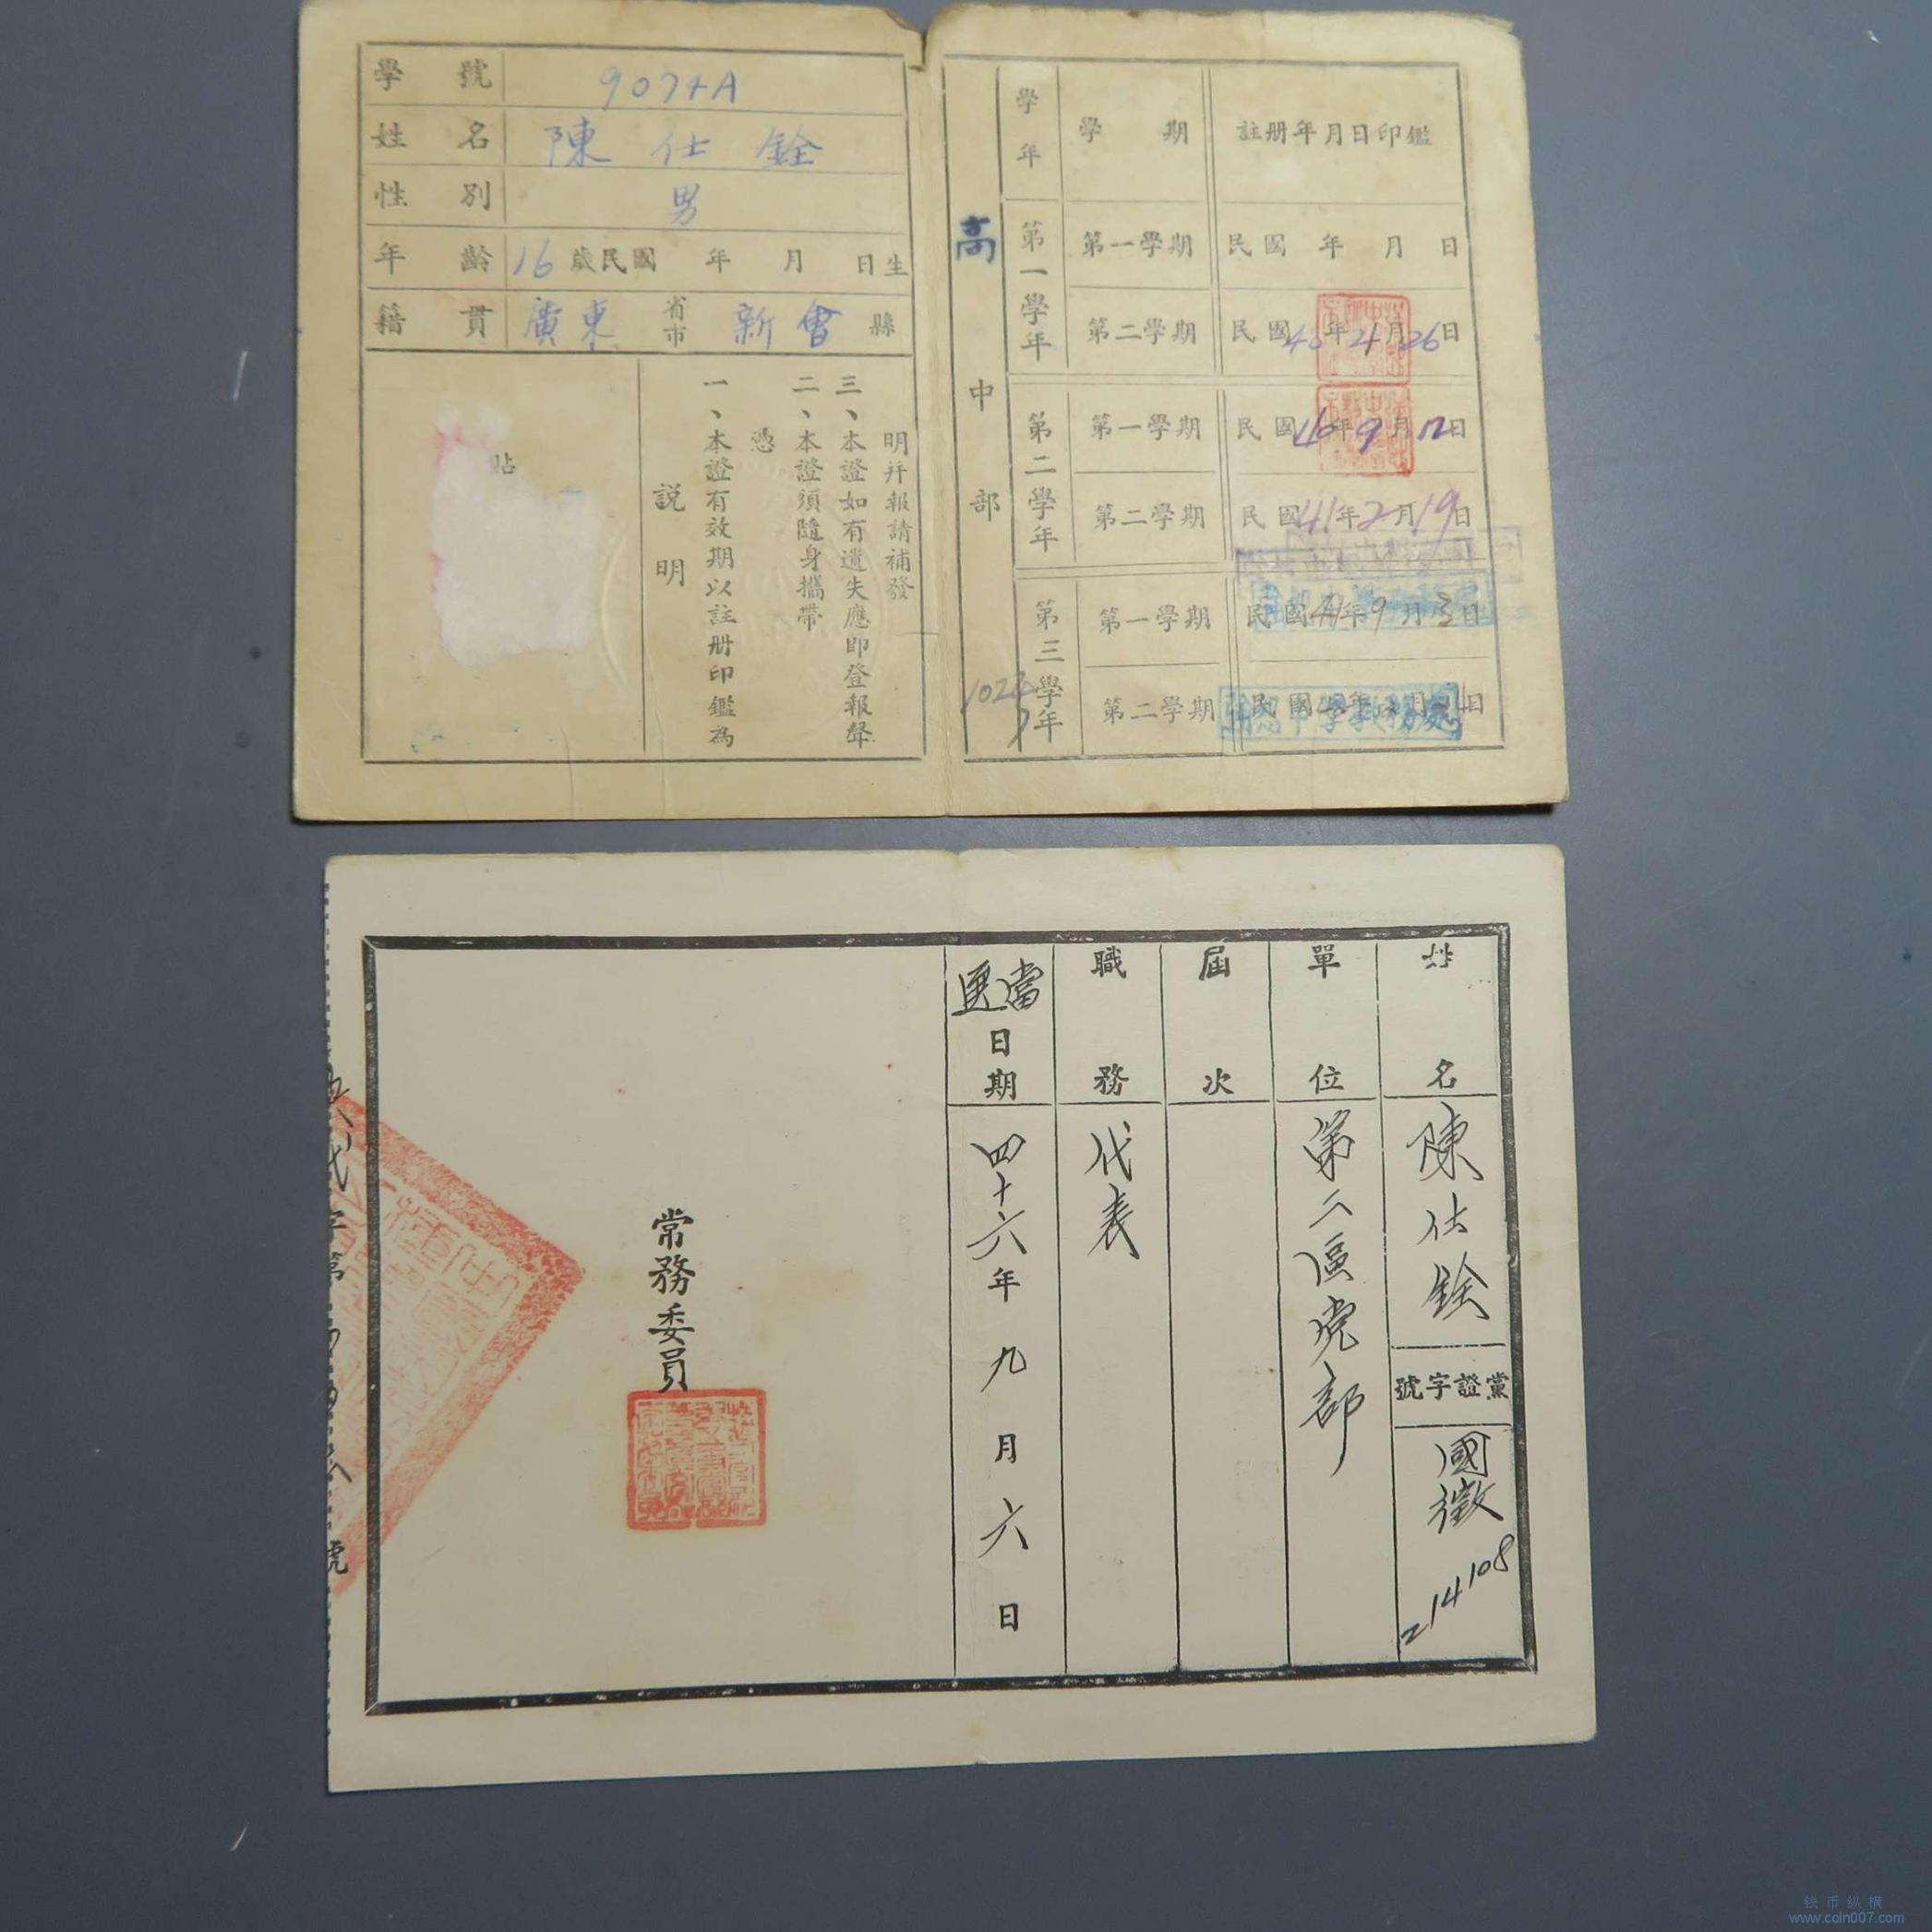 學號 9074A
姓名 陳仕銓
性別 男
年齡 16歲民國 年 月 日生
籍貫 廣東省市新會縣
貼
說明
一、本證有效期以註册印鑑為
憑
二、本證須隨身攜帶
三、本證如有遺失應即登報聲
明并報請補發
高中部
學年 學期 註册年月日印鑑
第一學年 第一學期 民國 年 月 日
第二學期 民國40年2月26日
第二學年 第一學期 民國40年9月12日
第二學期 民國41年2月19日
第三學年 第一學期 民國41年9月3日
第二學期 民國 年 月 日
姓名 陳仕銓
黨證字號 國徵 214108
單位 第二區党部
屆次
職務 代表
當選日期 四十六年九月六日
常務委員
字第
號
钱币纵横
www.coin007.com